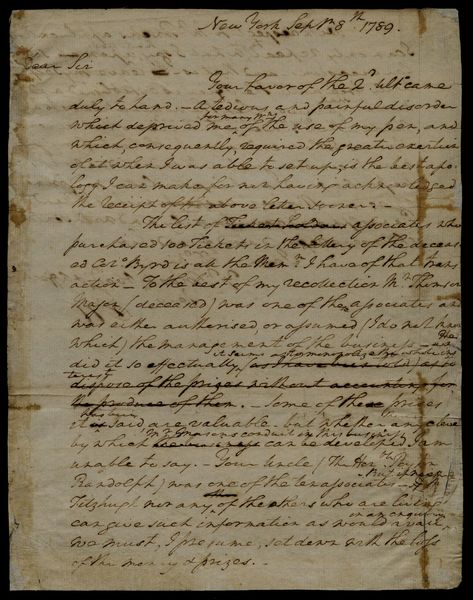 New York Sepr 8th 1789.
Dear Sir
Your favor of the 2d ult came
duly to hand. – A tedious and painful disorder
for many Wks
which deprived me of the use of my pen, and
which, consequently, required the greater exertion
of it when I was able to set up, is the best apo-
logy I can make for not having acknowledged
the receipt of above letter sooner. –
The list of associates who
purchased 100 Tickets in the lottery of the deceas-
ed Colo Byrd is all the Memm I have of that trans-
action – To the best of my recollection Mr Thomson
Mason (deceased) was one of the associates and
was either authorised, or assumed (I do not know
which) the management of the business –
He
it seems as to monopolize the whole in-
did it so effectually, as
terest
dispose of the prizes without accounting for
the produce of them. – Some of these prizes
it is said are valuable – but whether any clew
Mr Masons conduct in this business
by which can be developed, I am
unable to say. – Your Uncle (the Honble
Randolph) was one of the ten associates –
Fitzhugh nor any of the others who are living
on an enquiry
can give such information as would avail,
we must, I presume, set down with the loss
of the money & prizes. –